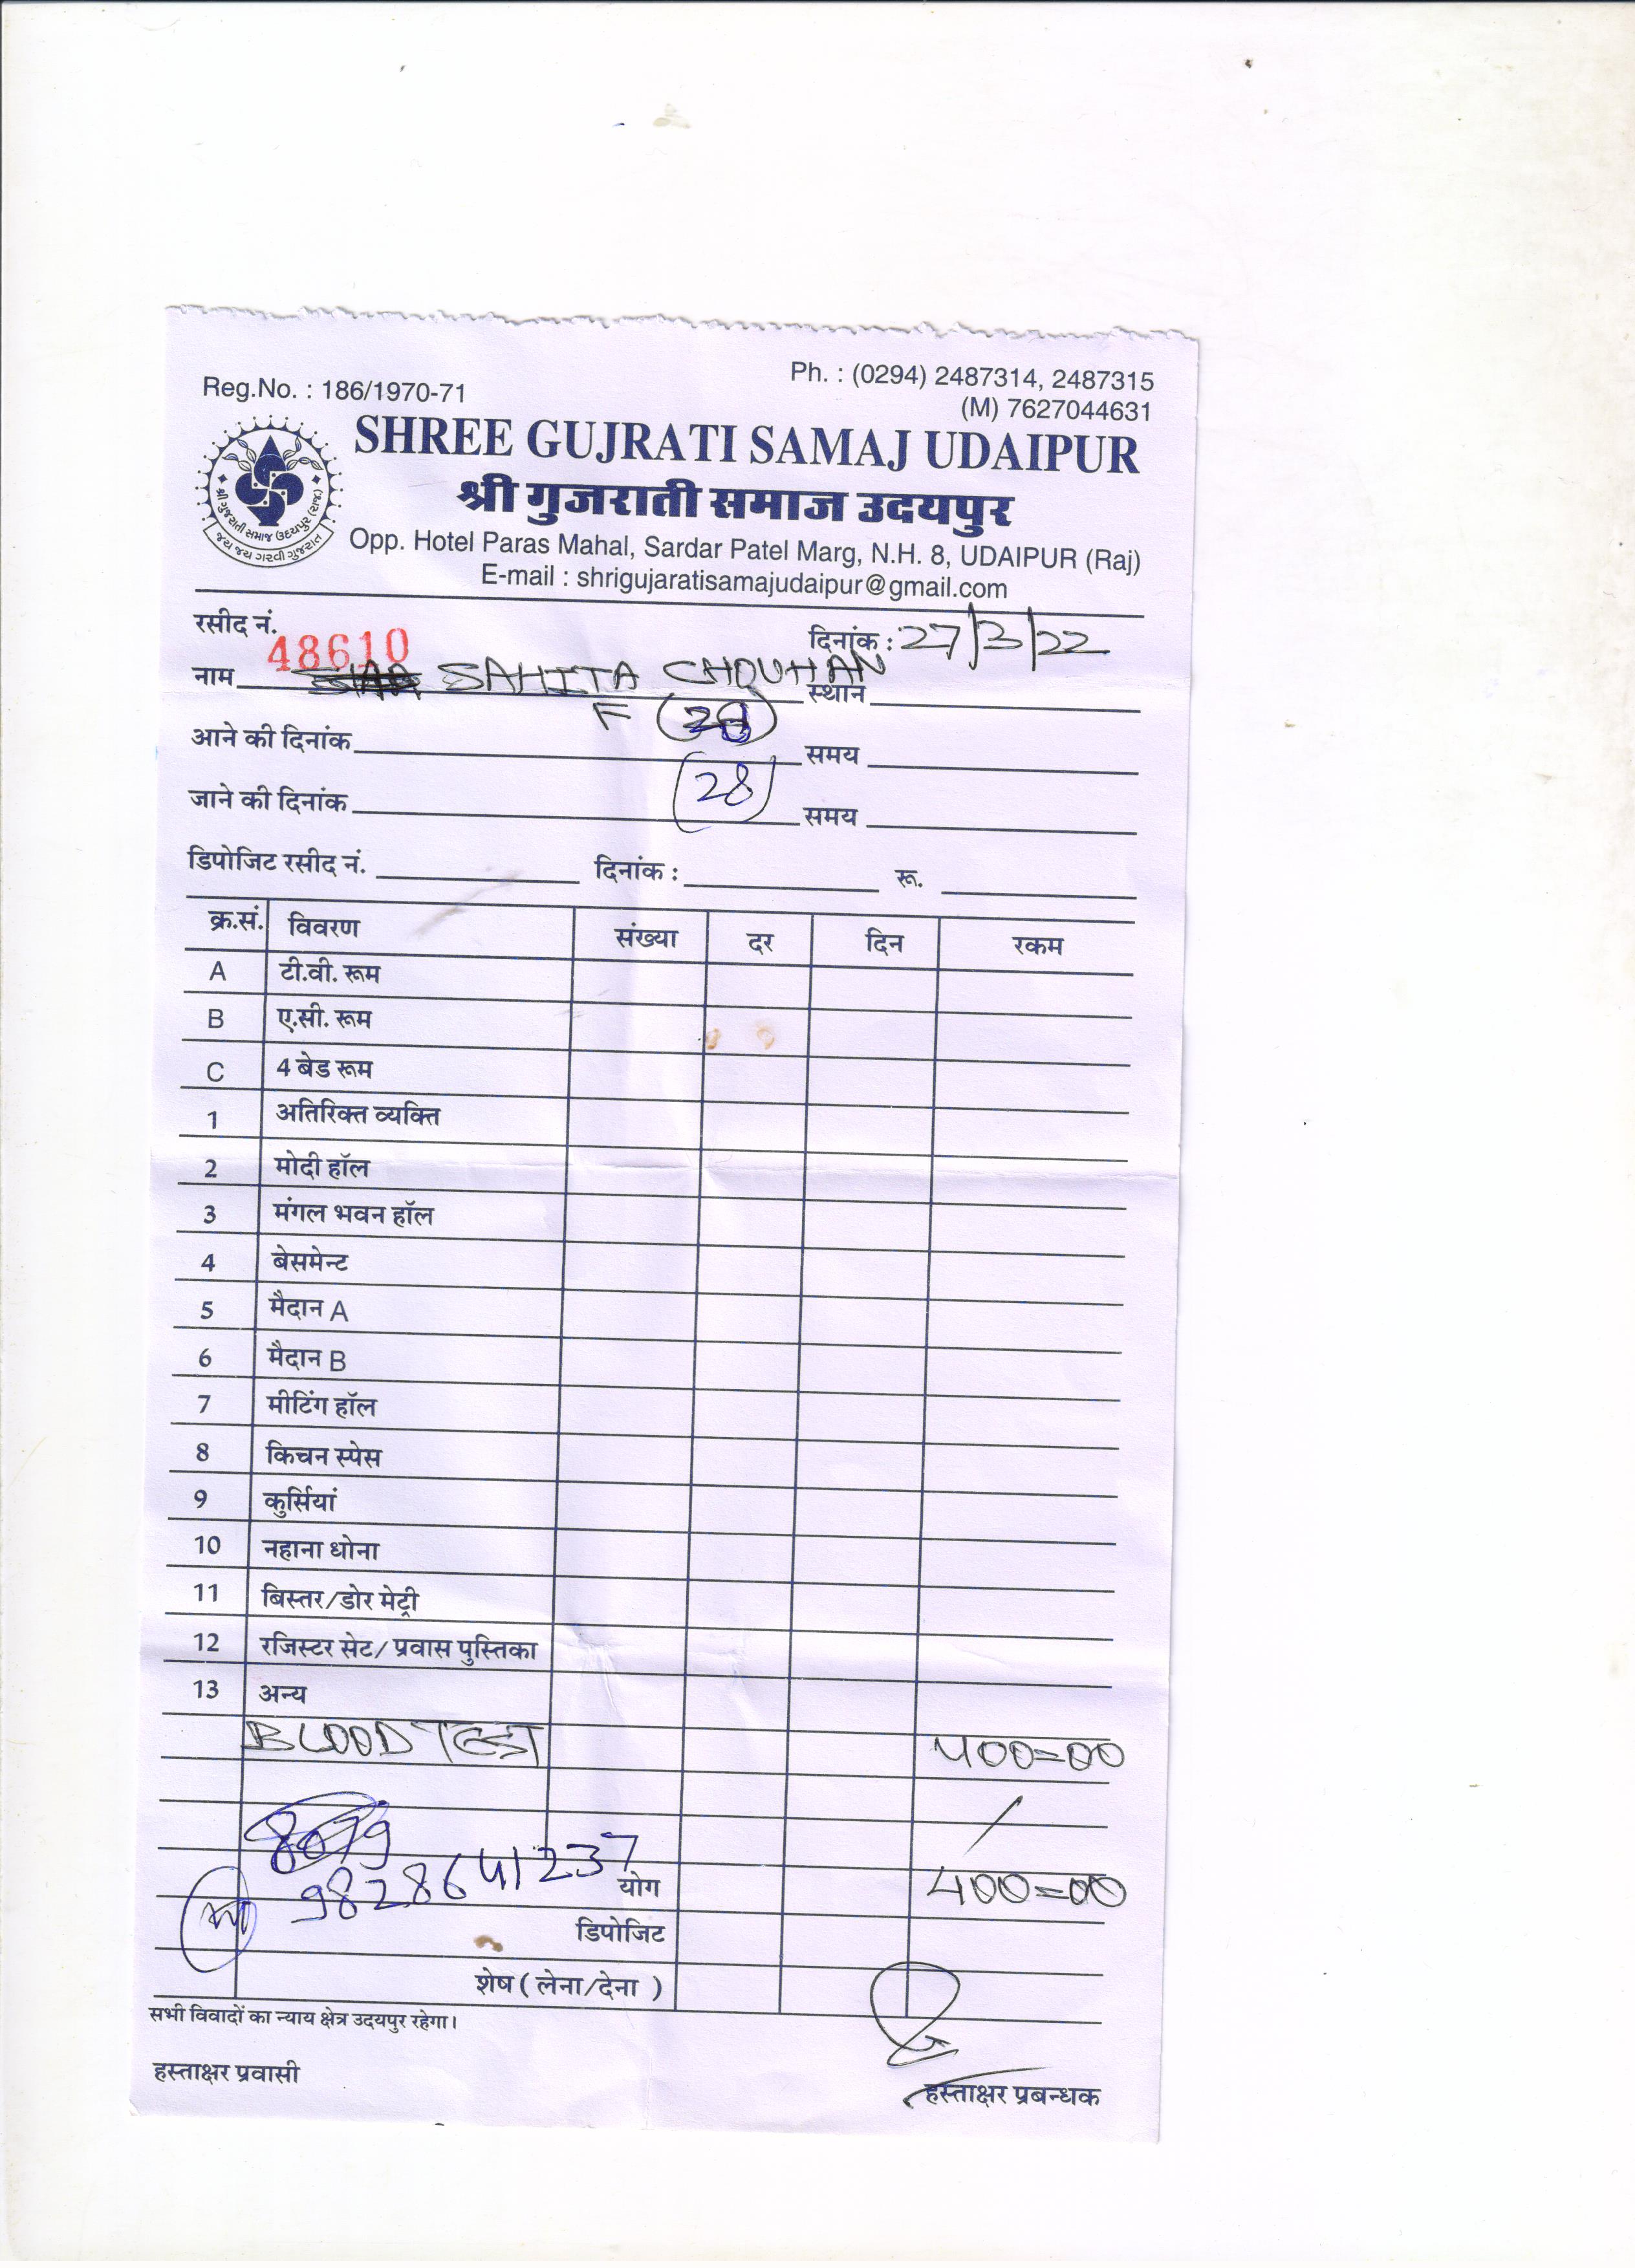 Reg.No. : 186/1970-71
Ph. : (0294) 2487314, 2487315
(M) 7627044631
SHREE GUJRATI SAMAJ UDAIPUR
श्री गुजराती समाज उदयपुर
શ્રી ગુજરાતી સમાજ ઉદયપુર (રાજ.)
જય જય ગરવી ગુજરાત
Opp. Hotel Paras Mahal, Sardar Patel Marg, N.H. 8, UDAIPUR (Raj)
E-mail : shrigujaratisamajudaipur@gmail.com
रसीद नं. 48610 दिनांक : 27/3/22
नाम SAHITA CHOUHAN स्थान
F
आने की दिनांक समय
(28)
जाने की दिनांक समय
डिपोजिट रसीद नं. दिनांक : रू.
क्र.सं. विवरण संख्या दर दिन रकम
A टी.वी. रूम
B ए.सी. रूम
C 4 बेड रूम
1 अतिरिक्त व्यक्ति
2 मोदी हॉल
3 मंगल भवन हॉल
4 बेसमेन्ट
5 मैदान A
6 मैदान B
7 मीटिंग हॉल
8 किचन स्पेस
9 कुर्सियां
10 नहाना धोना
11 बिस्तर/डोर मेट्री
12 रजिस्टर सेट/ प्रवास पुस्तिका
13 अन्य
BLOOD TEST 400=00
9828641237
योग 400=00
डिपोजिट
शेष ( लेना/देना )
सभी विवादों का न्याय क्षेत्र उदयपुर रहेगा।
हस्ताक्षर प्रवासी हस्ताक्षर प्रबन्धक